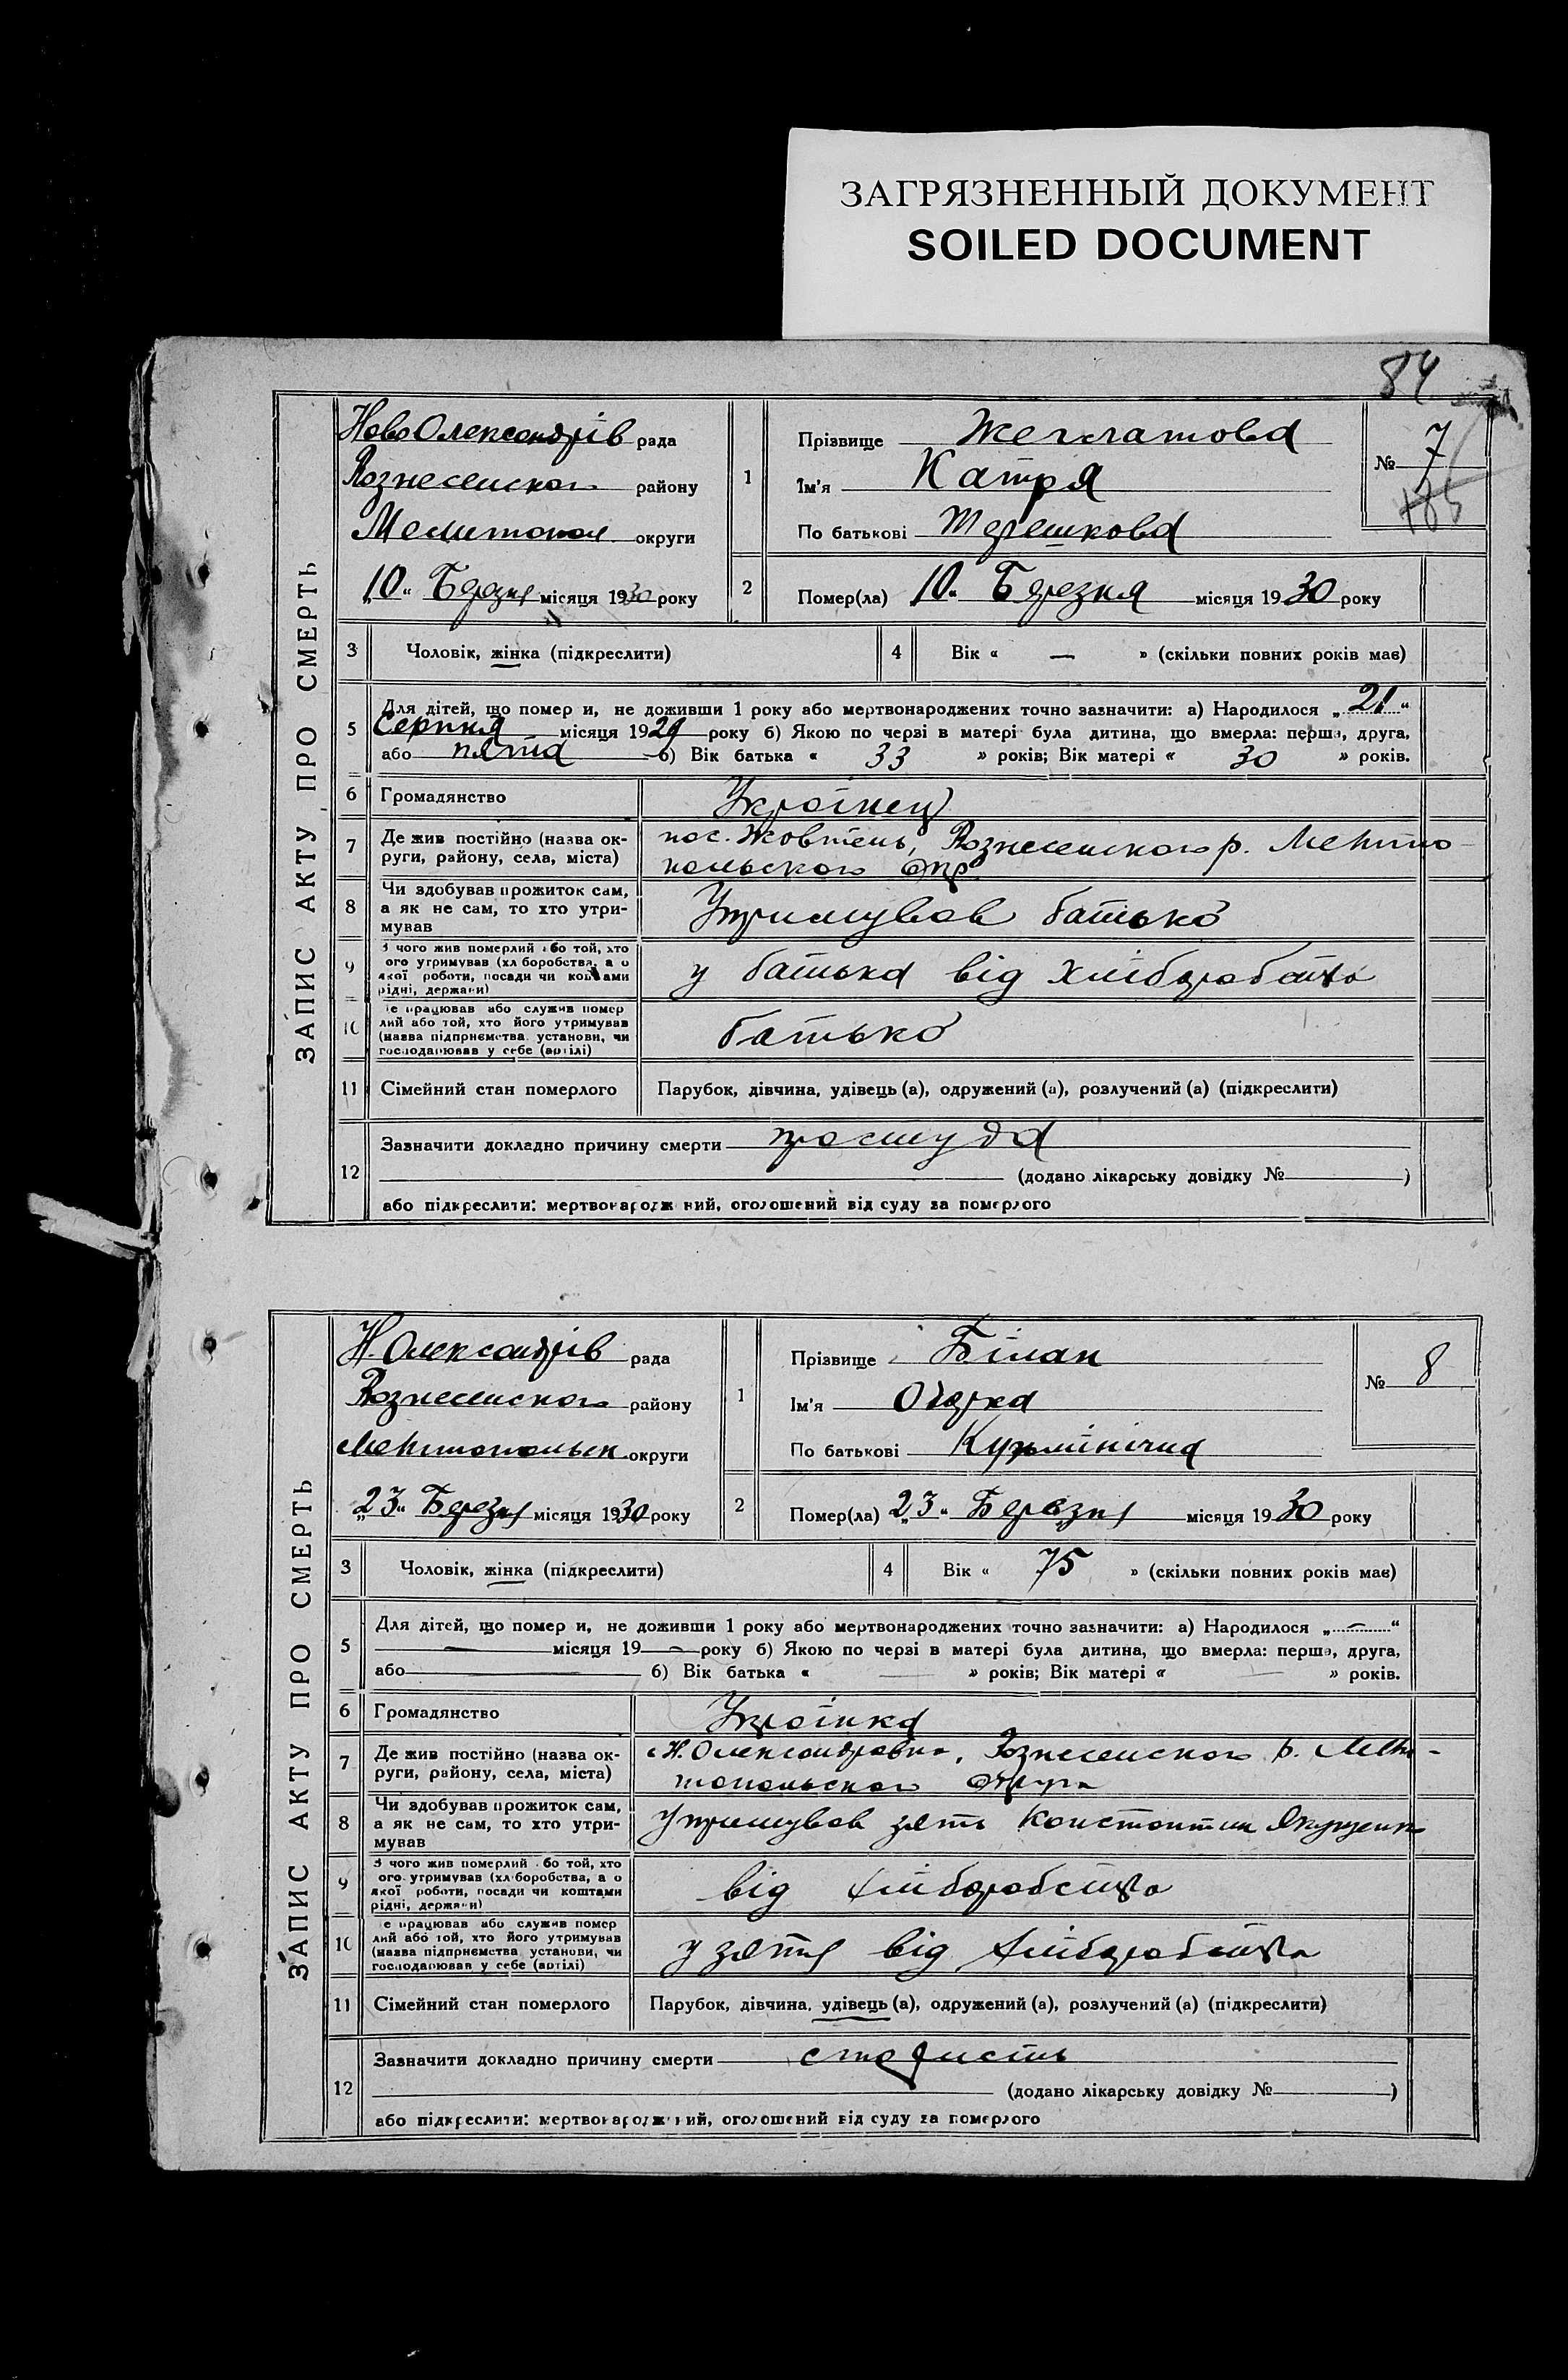 ЗАГРЯЗНЕННЫЙ ДОКУМЕНТ
SOILED DOCUMENT
84
ЗАПИС АКТУ ПРО СМЕРТЬ
НовоОлександрів рада
Вознесенского району
Мелитопол округи
„10“ Березня місяця 1930 року
1
Прізвище
Ім'я Катря
По батькові Терешкова
№ 7
185
2 Помер(ла) „10“ Березня місяця 1930 року
3 Чоловік, жінка (підкреслити)
4 Вік « — » (скільки повних років має)
5 Для дітей, що помер и, не доживши 1 року або мертвонароджених точно зазначити: а) Народилося „21“
Серпня місяця 1929 року б) Якою по черзі в матері була дитина, що вмерла: перша, друга,
або пята б) Вік батька « 33 » років; Вік матері « 30 » років.
6 Громадянство Українец
7 Де жив постійно (назва ок-
руги, району, села, міста)
пос. Жовтень, Вознесенского р. Мелито-
польского окр
8 Чи здобував прожиток сам,
а як не сам, то хто утри-
мував
Утримував батько
9 З чого жив померлий або той, хто
ого утримував (хл боробства, а о
якої роботи, посади чи коштами
рідні, держави)
у батька від хліборобства
10 е працював або служив помер
лий або той, хто його утримував
(назва підприємства, установи, чи
господарював у себе (артілі)
батько
11 Сімейний стан померлого Парубок, дівчина, удівець (а), одружений (а), розлучений (а) (підкреслити)
12 Зазначити докладно причину смерти простуда
(додано лікарську довідку № )
або підкреслити: мертвонародж ний, оголошений від суду за померлого
ЗАПИС АКТУ ПРО СМЕРТЬ
Н. Олександрів рада
Вознесенского району
Мелитопольск округи
„23“ Березня місяця 1930 року
1
Прізвище Білан
Ім'я
По батькові Кузьмінічна
№ 8
2 Помер(ла) „23“ Березня місяця 1930 року
3 Чоловік, жінка (підкреслити)
4 Вік « 75 » (скільки повних років має)
5 Для дітей, що помер и, не доживши 1 року або мертвонароджених точно зазначити: а) Народилося „—“
— місяця 19— року б) Якою по черзі в матері була дитина, що вмерла: перша, друга,
або — б) Вік батька « — » років; Вік матері « — » років.
6 Громадянство Українка
7 Де жив постійно (назва ок-
руги, району, села, міста)
с Н. Олександровка, Вознесенского р. Мели-
топольского округа
8 Чи здобував прожиток сам,
а як не сам, то хто утри-
мував
Утримував зять Константин
9 З чого жив померлий або той, хто
ого утримував (хл боробства, а о
якої роботи, посади чи коштами
рідні, держави)
від хліборобства
10 е працював або служив помер
лий або той, хто його утримував
(назва підприємства, установи, чи
господарював у себе (артілі)
у зятя від хліборобства
11 Сімейний стан померлого Парубок, дівчина, удівець (а), одружений (а), розлучений (а) (підкреслити)
12 Зазначити докладно причину смерти старисть
(додано лікарську довідку № )
або підкреслити: мертвонародж ний, оголошений від суду за померлого